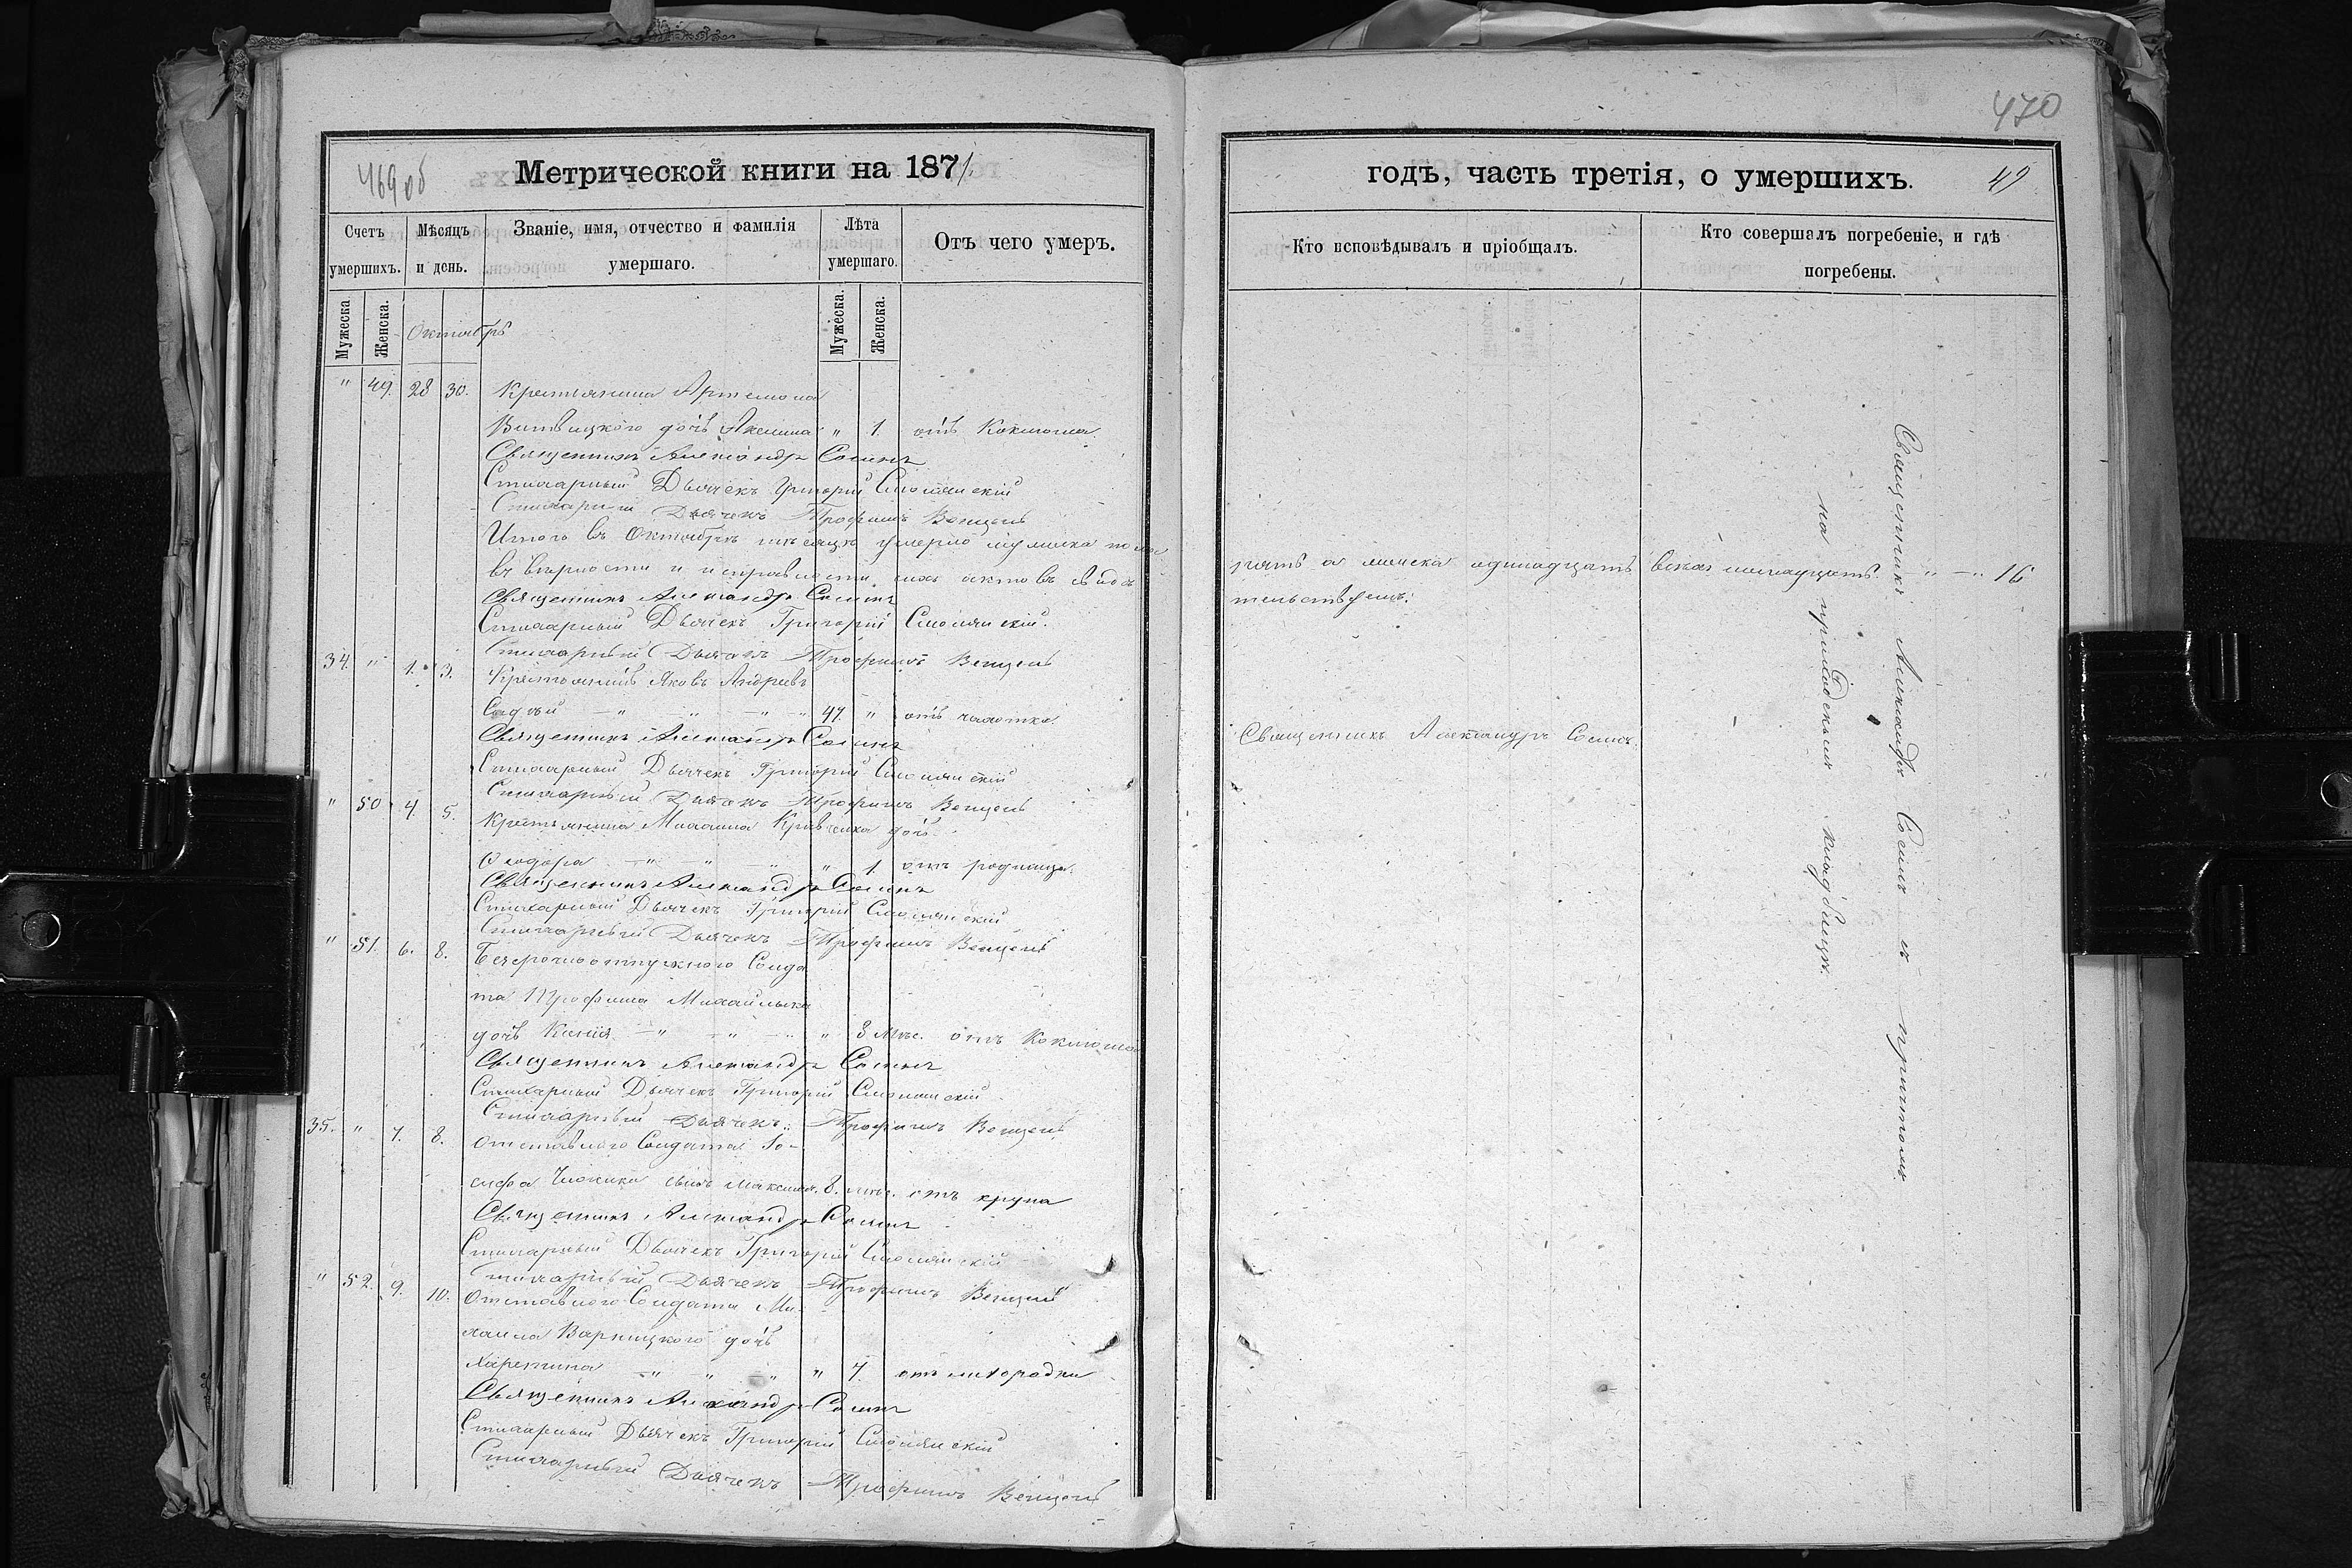 469об
Метрической книги на 1871.
Счетъ умершихъ.
Мѣсяцъ и день.
Званіе, имя, отчество и фамилія умершаго.
Лѣта умершаго.
Отъ чего умер.
Мужеска
Женска.
Октябрь
Мужеска.
Женска.
" 49. 28 30. Крестьянина Артемона
Витвицкого дочь Акилина " 1. отъ Коклюша.
Священникъ Александръ Солинъ
Стихарный Дьячекъ Григорій Смолянскій
Стихарный Дьячекъ Трофимъ Венцель
Итого въ Октябрѣ мѣсяцѣ умерло мужеска пола
въ вѣрности и исправности сихъ актовъ свидѣ
Священникъ Александръ Солинъ
Стихарный Дьячекъ Григорій Смолянскій.
Стихарный Дьячекъ Трофимъ Венцель
34. " 1. 3. Крестьянинъ Яковъ Андреевъ
47. " отъ чахотки.
Священникъ Александръ Солинъ
Стихарный Дьячекъ Григорій Смолянскій
Стихарный Дьячекъ Трофимъ Венцель
" 50 4. 5. Крестьянина Михаила Кравченка дочь
Ѳеодора " 1. отъ родимца.
Священникъ Александръ Солинъ
Стихарный Дьячекъ Григорій Смолянскій
Стихарный Дьячекъ Трофимъ Венцель
" 51. 6. 8. Безсрочноотпускного Солда
та Трофима Михайлыка
дочь Ксенія " 8 мѣс. отъ Коклюша
Священникъ Александръ Солинъ
Стихарный Дьячекъ Григорій Смолянскій
Стихарный Дьячекъ Трофимъ Венцель
35. " 7. 8. Отставного Солдата Іо-
сифа сынъ Максимъ. 8. мѣс. отъ крупа
Священникъ Александръ Солинъ
Стихарный Дьячекъ Григорій Смолянскій
Стихарный Дьячекъ Трофимъ Венцель
" 52. 9. 10. Отставного Солдата Ми-
хаила Варницкого дочь
Харитина " 7. отъ лихорадки
Священникъ Александръ Солинъ
Стихарный Дьячекъ Григорій Смолянскій
Стихарный Дьячекъ Трофимъ Венцель
470
годъ, часть третія, о умершихъ.
49
Кто исповѣдывалъ и пріобщалъ.
Кто совершалъ погребеніе, и гдѣ погребены.
пять а женска одинадцать всѣхъ шеснадцать. 16
тельствуемъ:
Священникъ Александръ Солинъ.
Священникъ Александръ Солинъ съ причтомъ
на приходскомъ кладбищѣ.